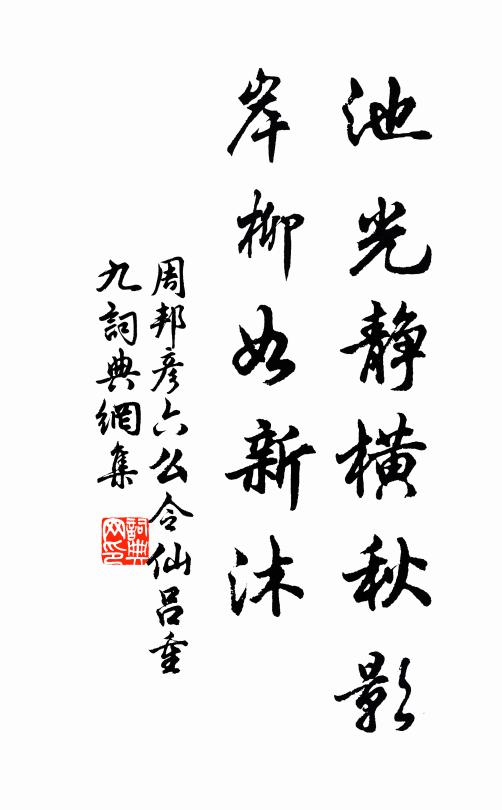 池光静橫秋影
岸柳如新沐
周邦彦六么令仙呂重
九詞典網集
詞典
网印